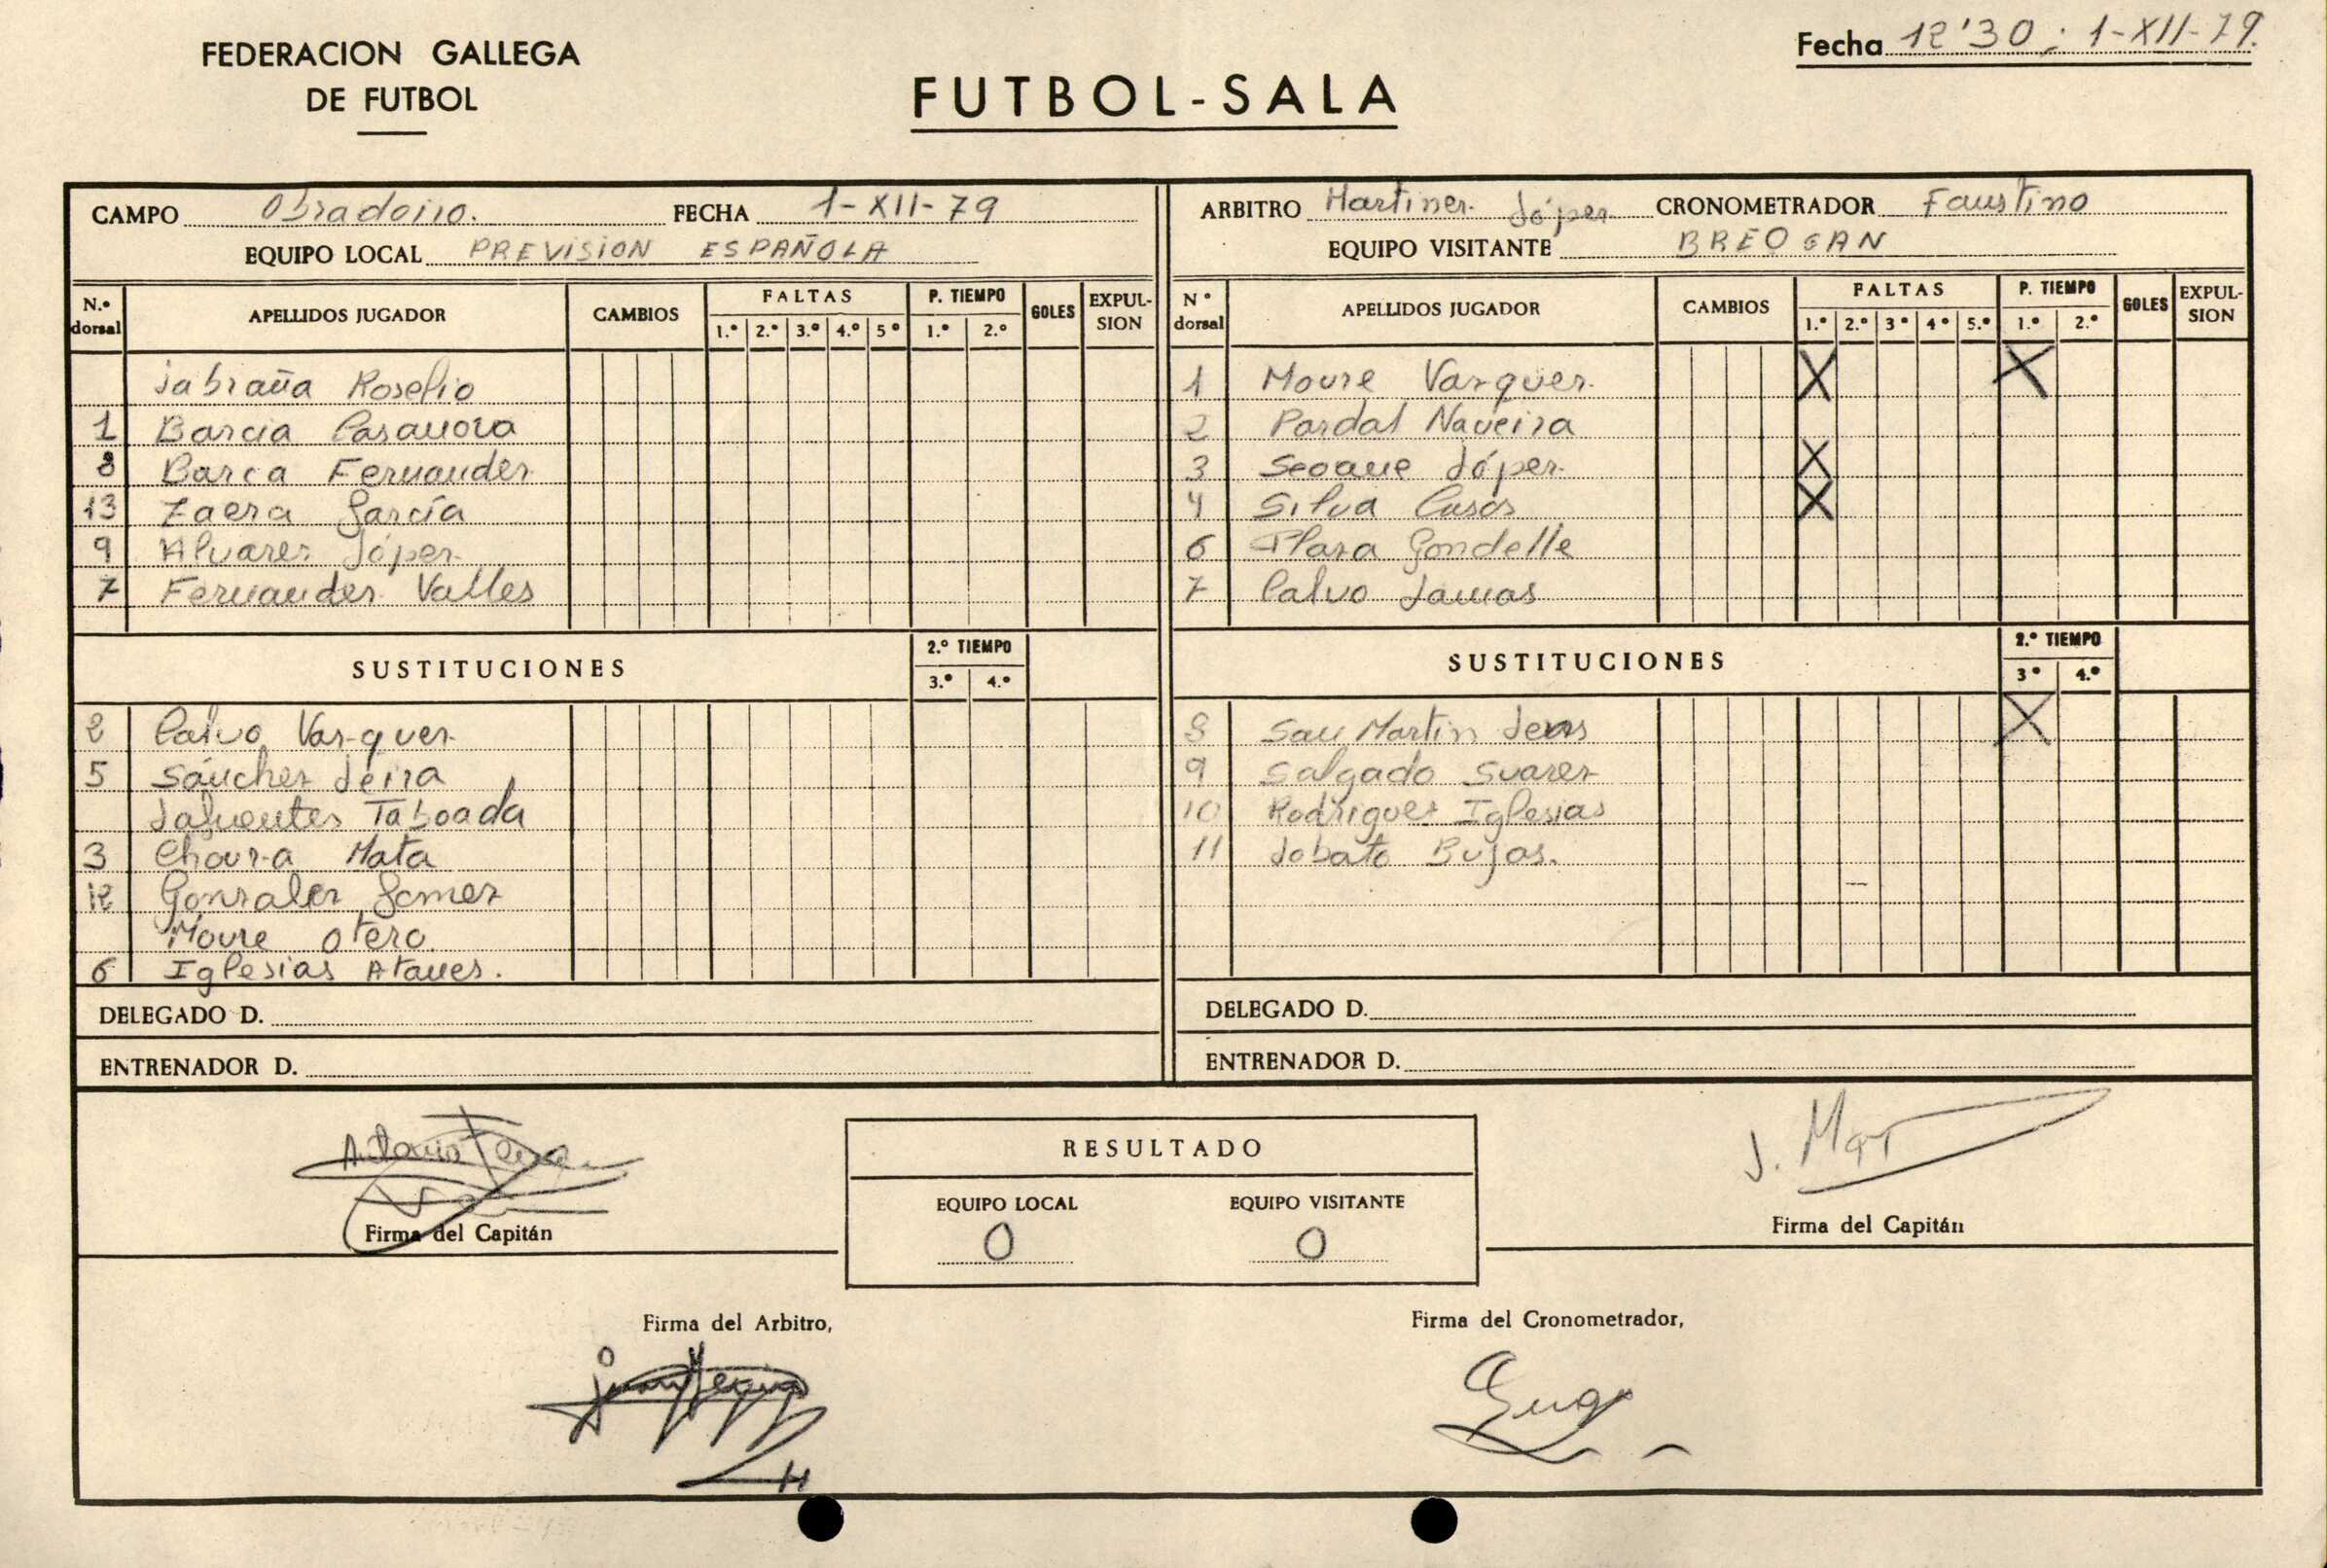 FEDERACION GALLEGA
DE FUTBOL
FUTBOL-SALA
Fecha 12'30; 1-XII-79.
CAMPO Obradoiro. FECHA 1-XII-79
EQUIPO LOCAL PREVISION ESPAÑOLA
N.º dorsal APELLIDOS JUGADOR CAMBIOS FALTAS 1.º 2.º 3.º 4.º 5º P. TIEMPO 1.º 2.º GOLES EXPUL-SION
Labraña Roselio
1 Barcia Casanova
8 Barca Fernandez
13 Zaera García
9 Alvarez López
7 Fernandez Valles
SUSTITUCIONES 2.º TIEMPO 3.º 4.º
2 Calvo Vazquez
5 Sánchez Leira
Lafuentes Taboada
3 Chouza Mata
12 Gonzalez Gomez
Moure Otero
6 Iglesias Atanes.
DELEGADO D.
ENTRENADOR D.
ARBITRO Martinez López CRONOMETRADOR Faustino
EQUIPO VISITANTE BREOGAN
Nº dorsal APELLIDOS JUGADOR CAMBIOS FALTAS 1.º 2.º 3º 4º 5.º P. TIEMPO 1.º 2.º GOLES EXPUL-SION
1 Moure Vazquez X X
2 Pardal Naveira
3 Seoane López X
4 Silva Casos X
6 Plaza Gondelle
7 Calvo Lamas
SUSTITUCIONES 2.º TIEMPO 3º 4.º
8 San Martin X
9 Salgado Suarez
10 Rodriguez Iglesias
11 Lobato Bujas.
DELEGADO D.
ENTRENADOR D.
Firma del Capitán
RESULTADO
EQUIPO LOCAL EQUIPO VISITANTE
0 0
Firma del Capitán
Firma del Arbitro,
Firma del Cronometrador,